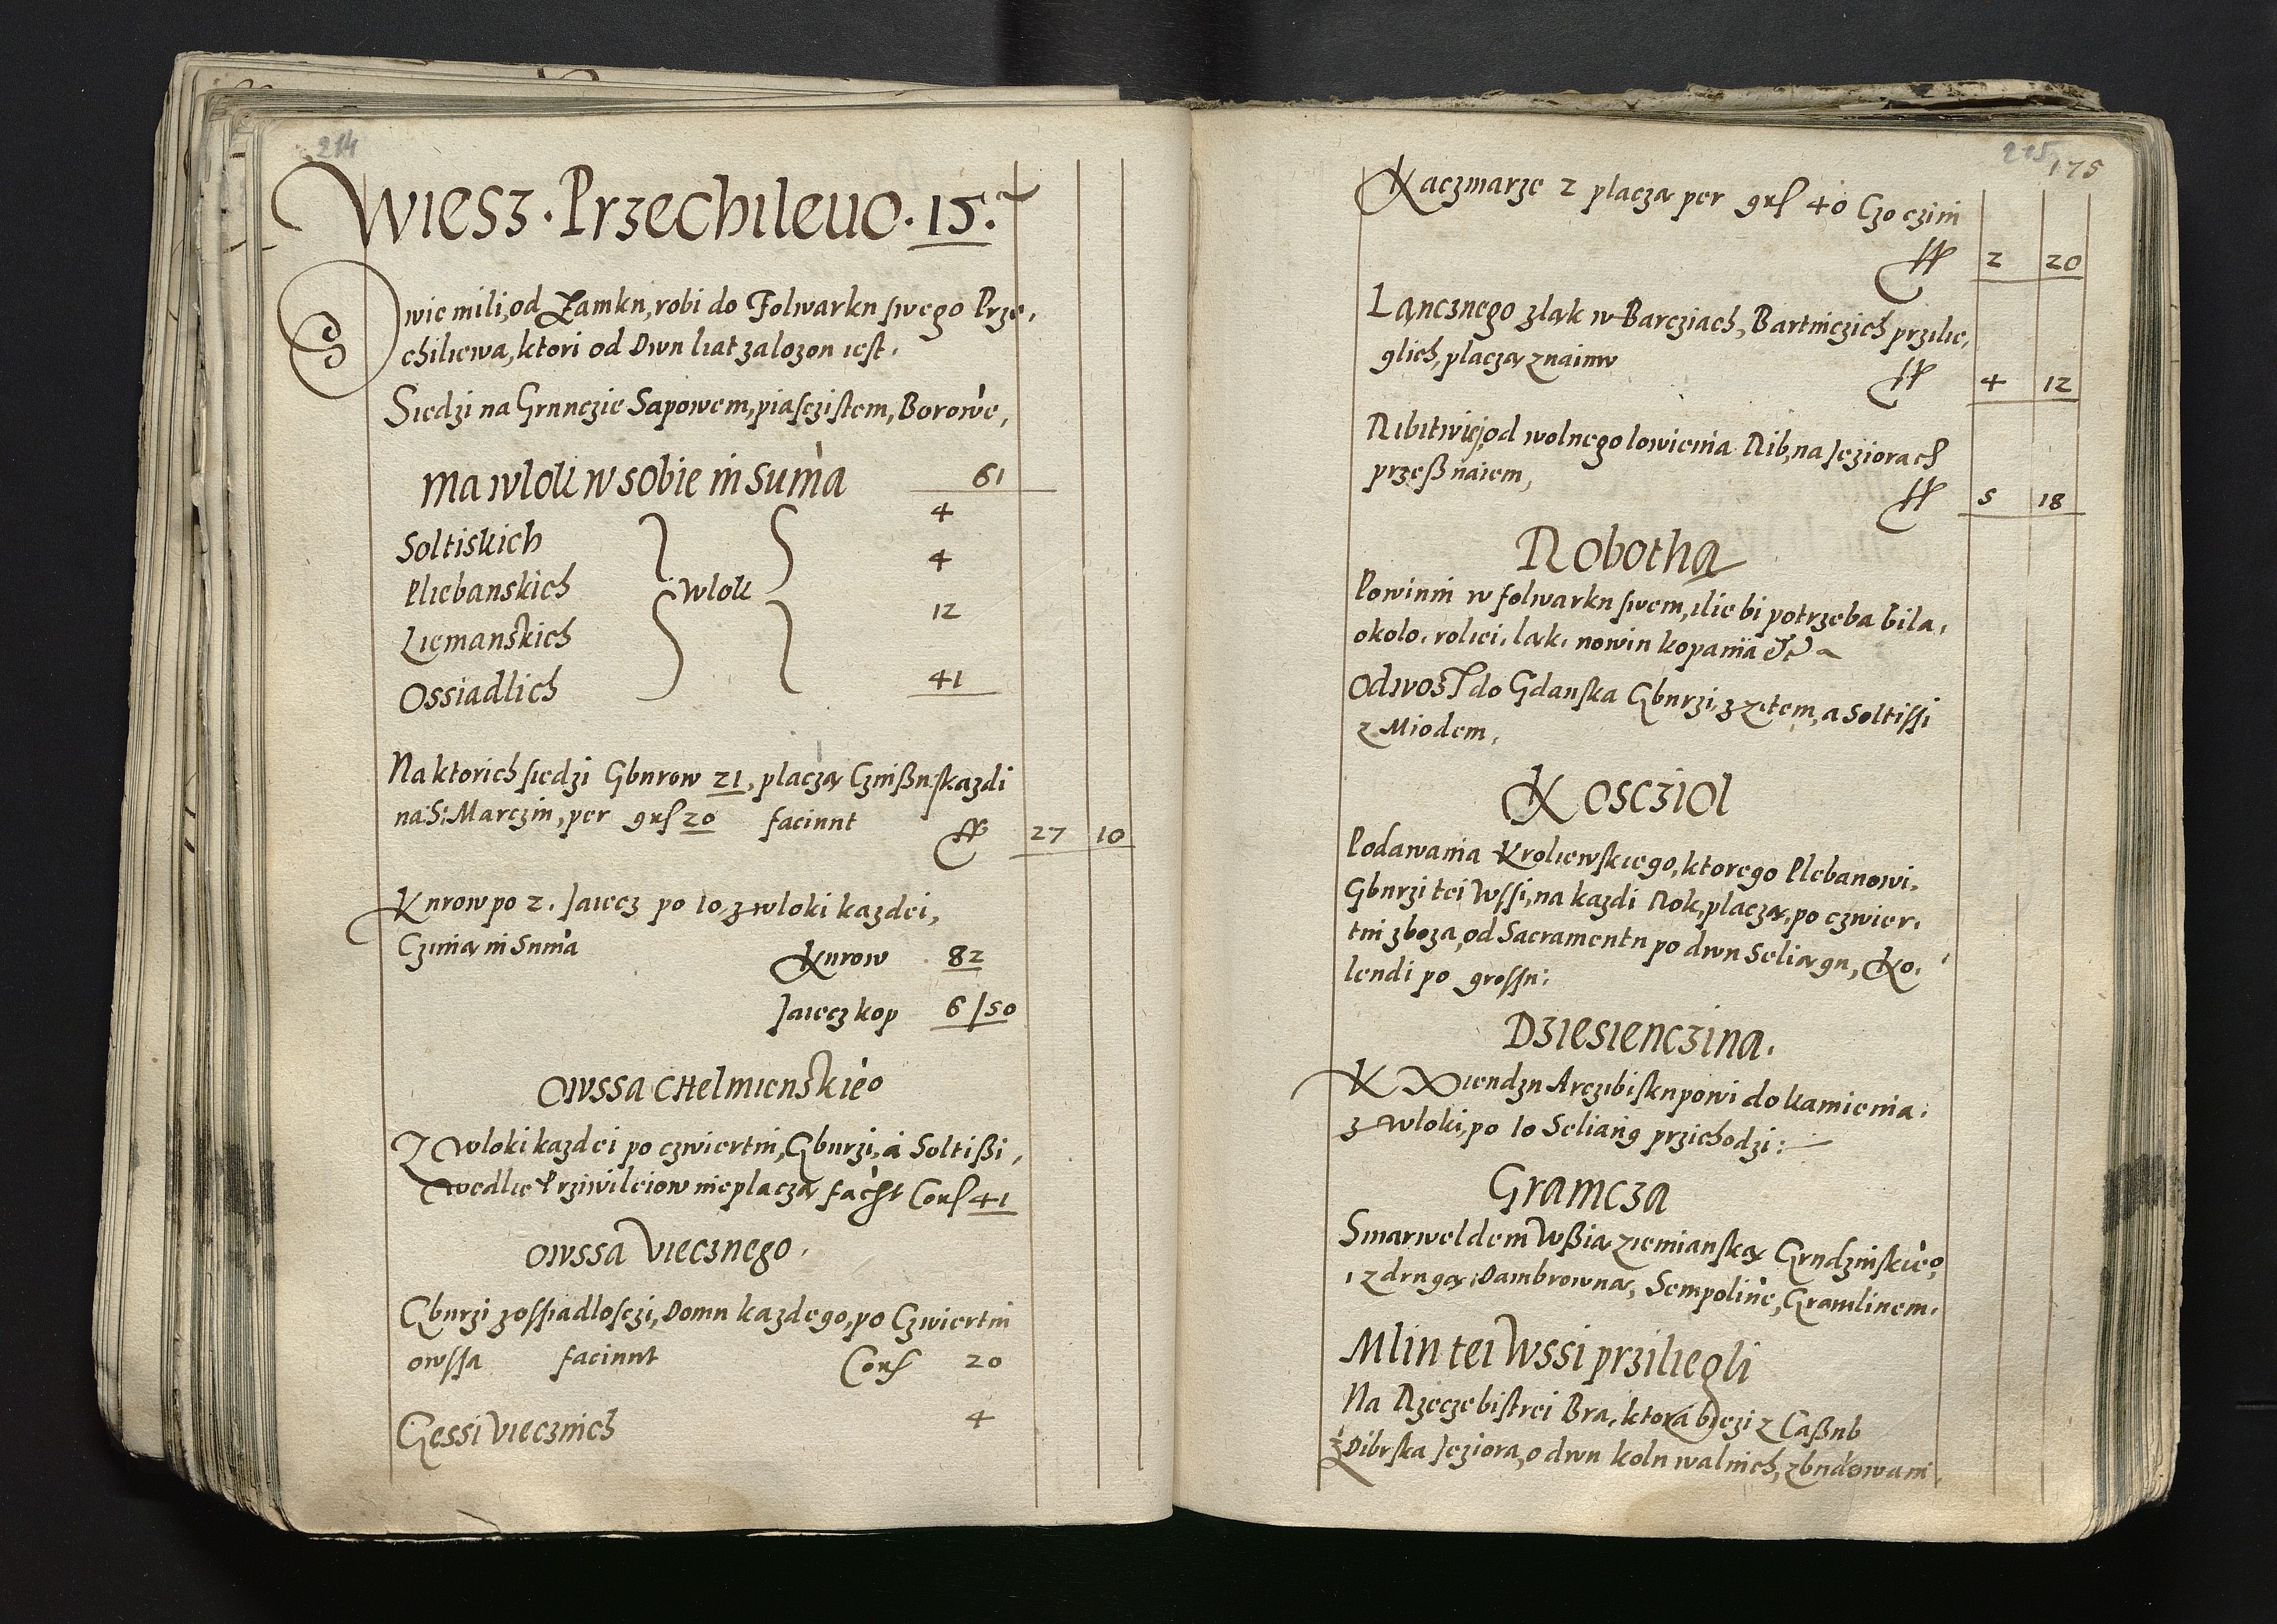 214
Wiesz · Przechileuo · 15 ·
Dwie mili, od Zamku, robi do Folwarku swego Prze,
chiliewa, ktori od Dwu liat zalozon iest.
Siedzi na Grunczie Sapowem, piasczistem, Borowe,
Ma wlok w sobie in Suma 61
4
Soltiskich
4
Pliebanskich wlok
12
Ziemanskich
Ossiadlich 41
Na ktorich siedzi Gburow 21, placzą Czinßu kazdi
na S: Marczin, per grs 20 faciunt ff 27 10
Kurow po 2. Jaiecz po 10, z wloki kazdei,
Czinią in Suma
Kurow 82
Jaiecz kop 6/50
Owssa Chelmienskieo
Z wloki kazdei po czwiertni, Gburzi, a Soltißi,
wedlie Prziwileiow nie placzą facnt Cors 41
Owssa Viecznego.
Gburzi z ossiadlosczi, Domu kazdego, po Czwiertni
owssa faciunt Cors 20
Gessi Viecznich 4
215 175
Kaczmarze 2 placzą per grs 40 Czo czini
ff 2 20
Lancznego z lak w Barcziach, Bartniczich przilie,
glich, placzą z naimu ff 4 12
Ribitwiej, od wolnego lowienia Rib, na Jeziorach
przeß naiem, ff 5 18
Robotha
Powinni w folwarku swem, ilie bi potrzeba bila,
okolo, roliei, lak, nowin kopania &c
Odwosz do Gdanska Gburzi, z zitem, a Soltissi
z Miodem,
Koscziol
Podawania Kroliewskiego, ktorego Plebanowi,
Gburzi tei Wssi, na kazdi Rok, placzą, po czwier,
tni zboza, od Sacramentu po dwu Seliągu, Ko,
lendi po grossu:
Dziesienczina.
K Xiendzu Arczibiskupowi do Kamienia,
z wloki, po 10 Seliang przichodzi:
Gramcza
Smarweldem Wßią ziemianską Grudzinskieo,
i z drugą Dambrowną, Sempoline, Gramlinem.
Mlin tei Wssi prziliegli
Na Rzecze bistrei Bra, ktora biezi z Caßub
z Dibrska Jeziora, o dwu kolu walnich, zbudowani,